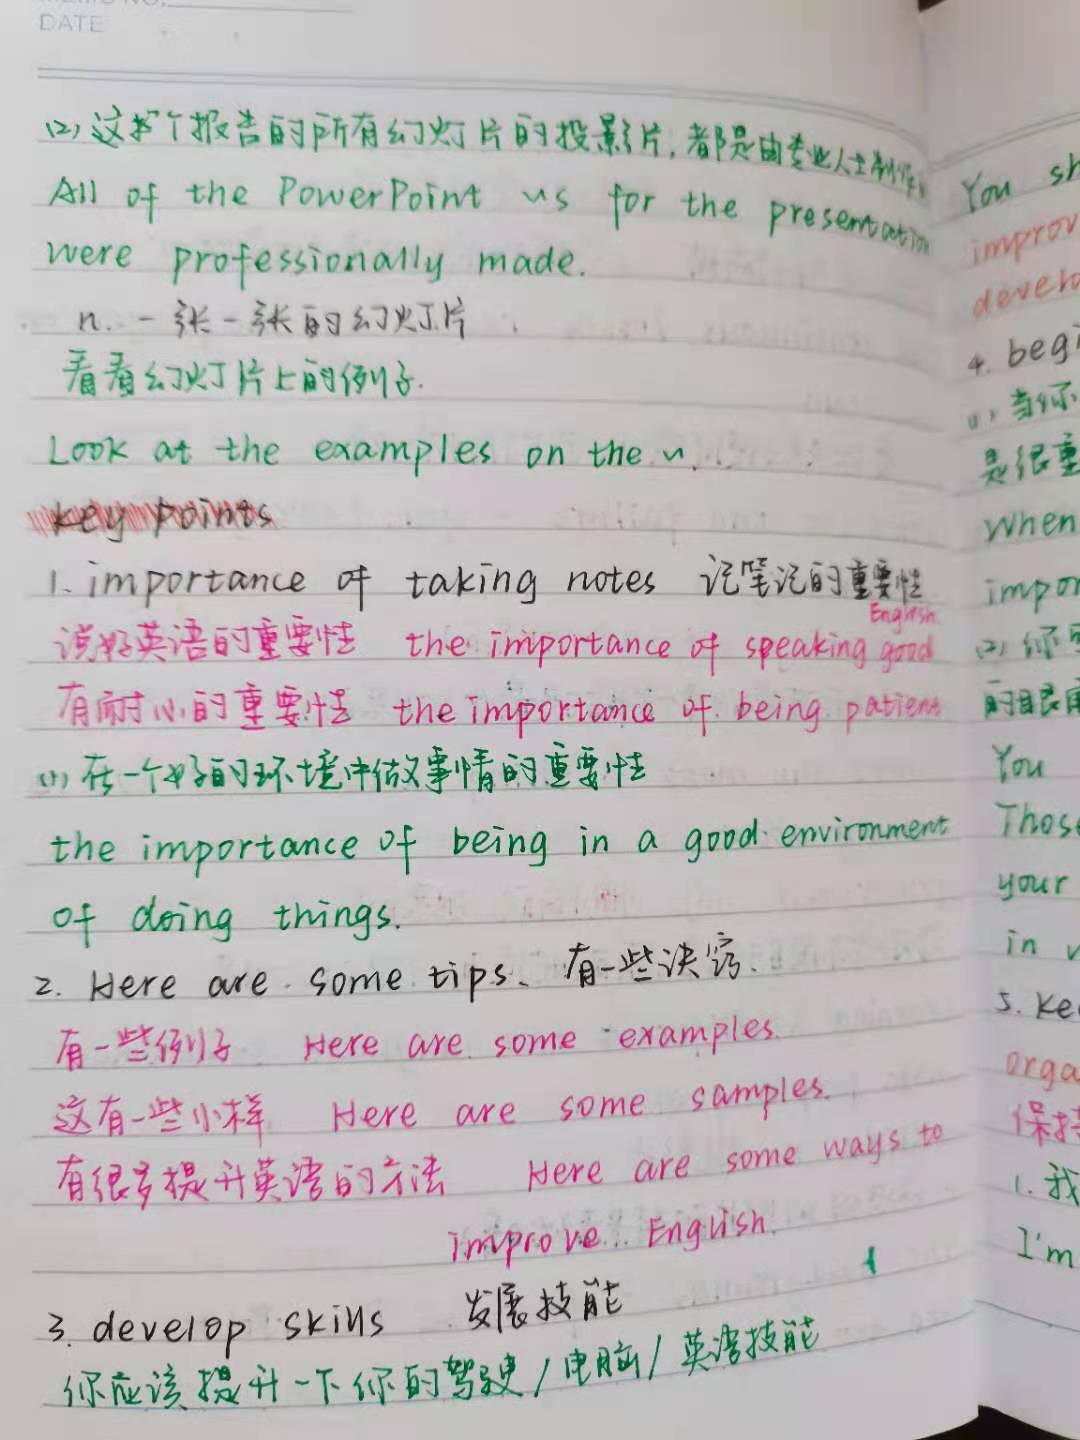 DATE
(2) 这个报告的所有幻灯片的投影片,都是由专业人士制作
All of the PowerPoint us for the presentation
were professionally made.
n. 一张一张的幻灯片
看看幻灯片上的例子.
Look at the examples on the u.
key points
1. importance of taking notes 记笔记的重要性
English
说好英语的重要性 the importance of speaking good
有耐心的重要性 the importance of being patient
(1) 在一个好的环境中做事情的重要性
the importance of being in a good environment
of doing things.
2. Here are some tips. 有一些诀窍.
有一些例子 Here are some examples.
这有一些小样 Here are some samples.
有很多提升英语的方法 Here are some ways to
improve English.
3. develop skills 发展技能
你应该提升一下你的驾驶/电脑/英语技能
You sh
improv
develo
4. begi
(1) 当你
是很重
When
impor
(2) 你
的眼
You
Those
your
in
5. Ke
orga
保持
1. 我
I'm